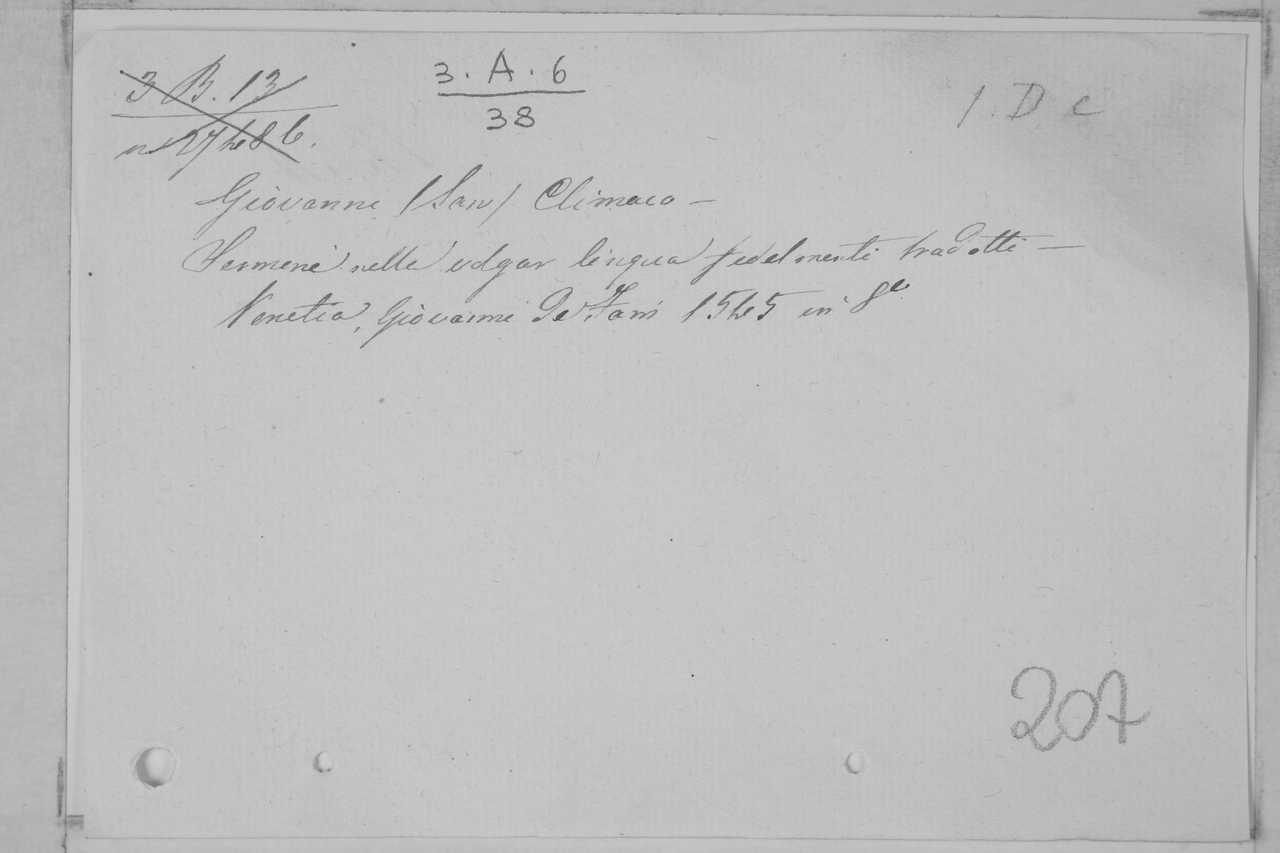 3 B. 13
3. A. 6
1. D c
38
Giovanni (San) Climaco —
Sermoni nella volgar lingua fedelmenti tradotti —
Venetia, Giovanni De 1545 in 8º
207